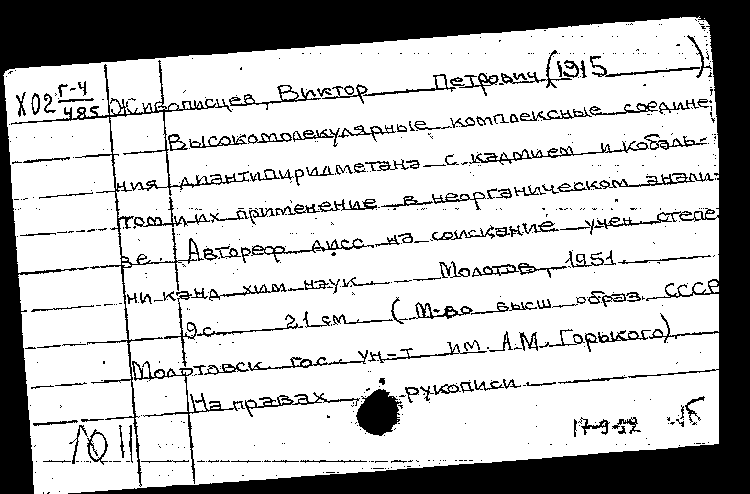 Х02 Г-4/485 Живописцев, Виктор Петрович (1915 )
Высокомолекулярные комплексные соедине
ния диантипирилметана с кадмием и кобаль-
том и их применение в неорганическом анали-
зе. Автореф дисс. на соискание учен степе
ни канд хим. наук. Молотов, 1951.
9с. 21 см. (М-во высш. образ. СССР
Молотовск гос. ун-т им. А.М. Горького)
На правах рукописи.
10 11
17-9-52